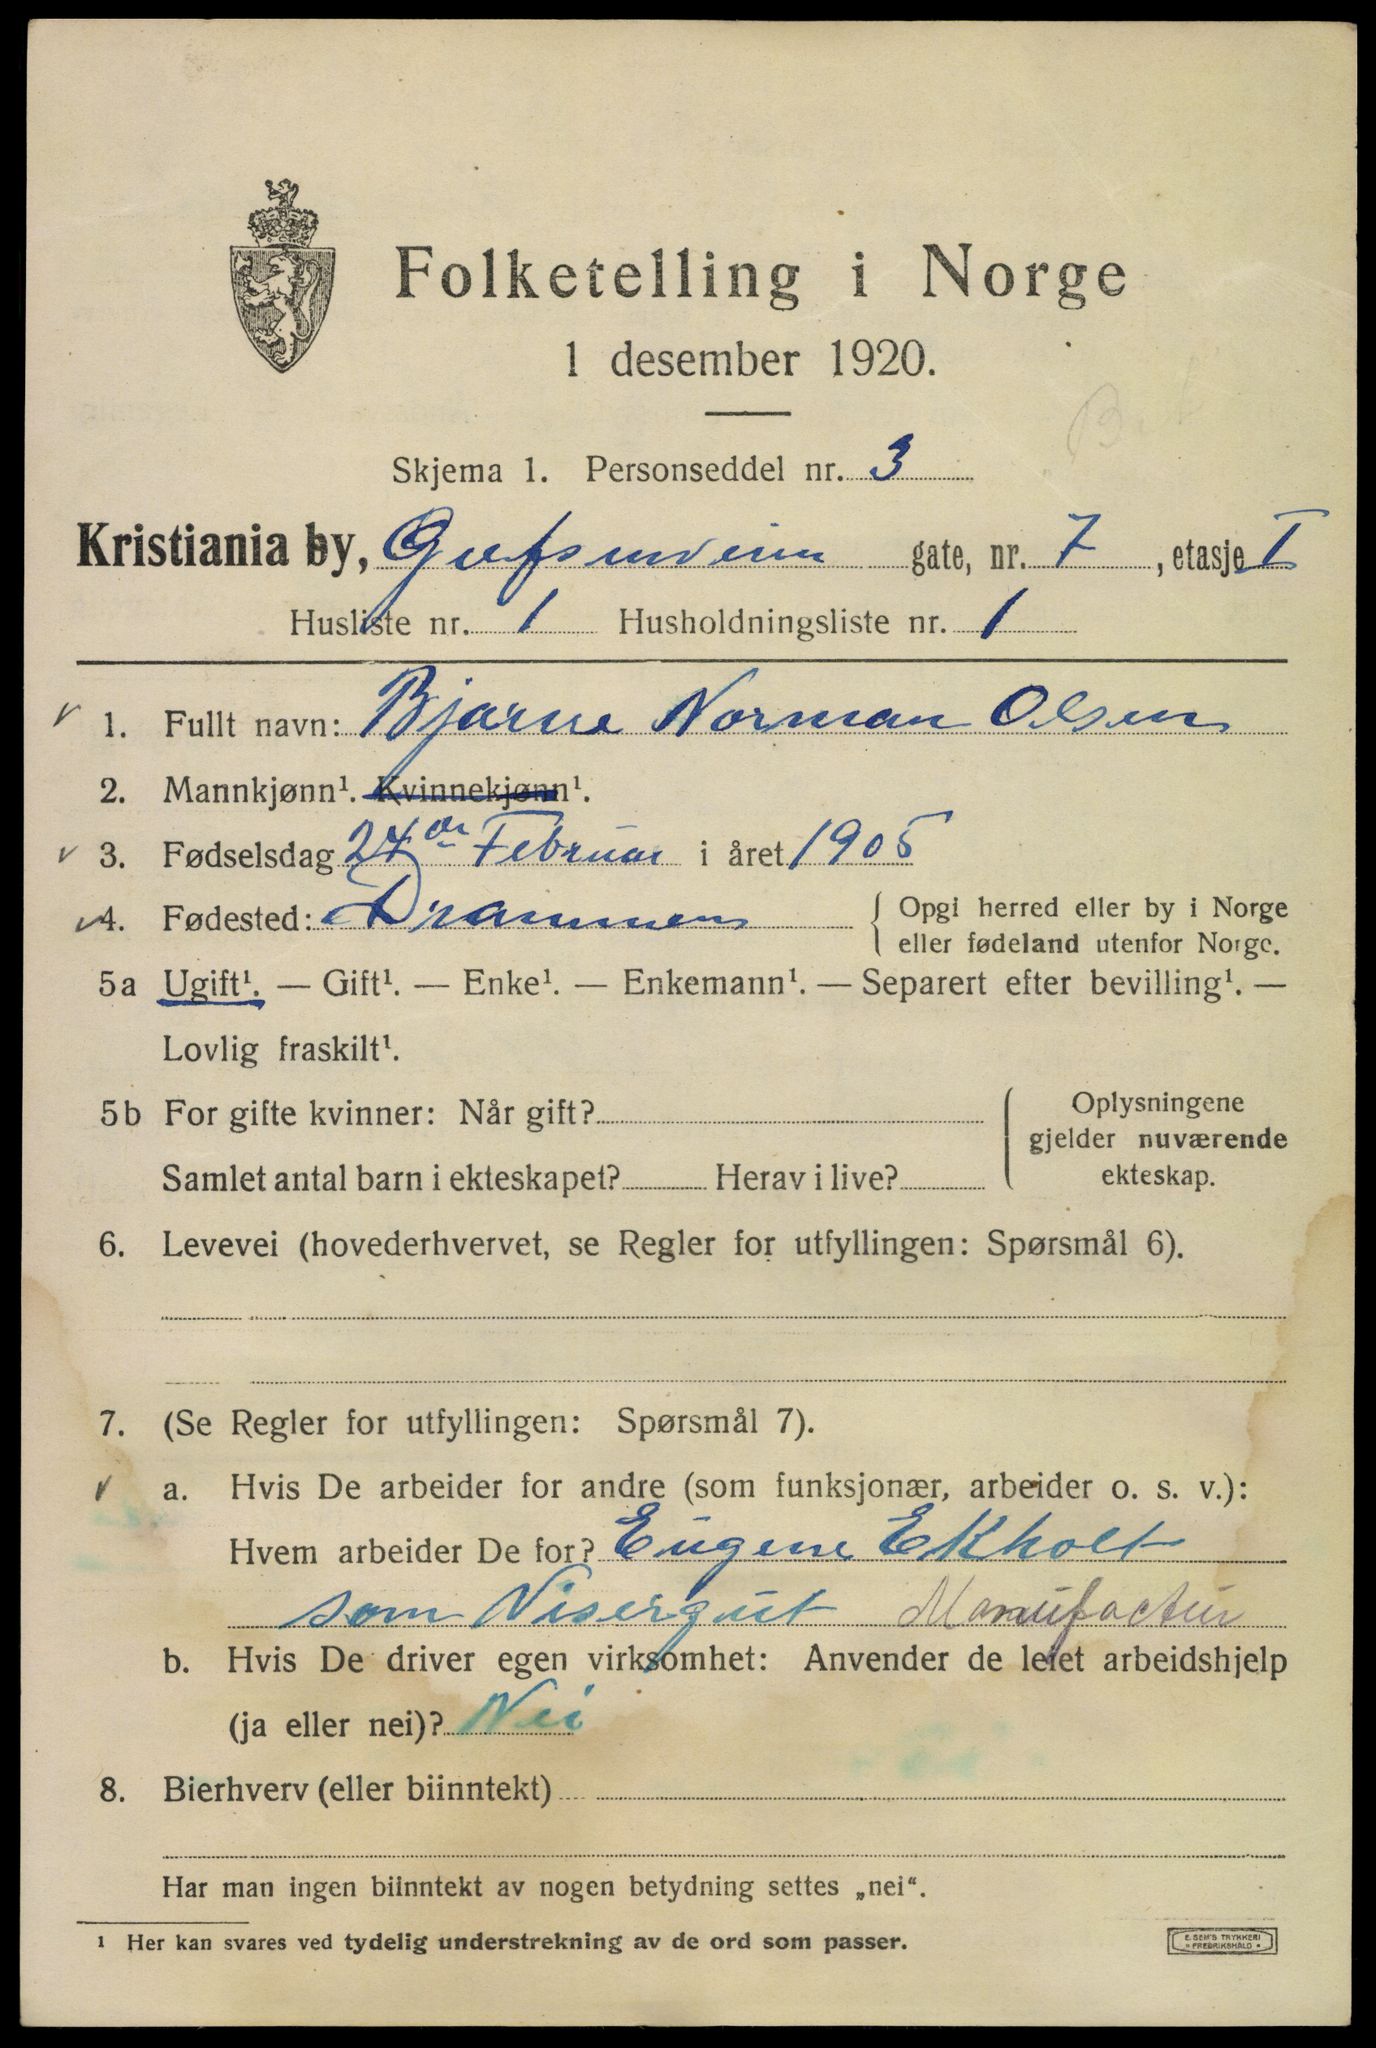 Folketelling i Norge
1 desember 1920.
Skjema 1. Personseddel nr. 3
Kristiania by, gate, nr. 7, etasje I
Husliste nr. 1 Husholdningsliste nr. 1
1. Fullt navn: Bjarne Norman Olsen
2. Mannkjønn¹. Kvinnekjønn¹.
3. Fødselsdag 24de Februar i året 1905
4. Fødested: Drammen
{ Opgi herred eller by i Norge
eller fødeland utenfor Norge.
5a Ugift¹. — Gift¹. — Enke¹. — Enkemann¹. — Separert efter bevilling¹. —
Lovlig fraskilt¹.
5b For gifte kvinner: Når gift?
Samlet antal barn i ekteskapet? Herav i live?
{ Oplysningene
gjelder nuværende
ekteskap.
6. Levevei (hovederhvervet, se Regler for utfyllingen: Spørsmål 6).
7. (Se Regler for utfyllingen: Spørsmål 7).
a. Hvis De arbeider for andre (som funksjonær, arbeider o. s. v.):
Hvem arbeider De for? Eugene Ekholt
som Visergut Manufactur
b. Hvis De driver egen virksomhet: Anvender de leiet arbeidshjelp
(ja eller nei)? Nei
8. Bierhverv (eller biinntekt)
Har man ingen biinntekt av nogen betydning settes „nei“.
¹ Her kan svares ved tydelig understrekning av de ord som passer.
E. SEM'S TRYKKERI
FREDRIKSHALD